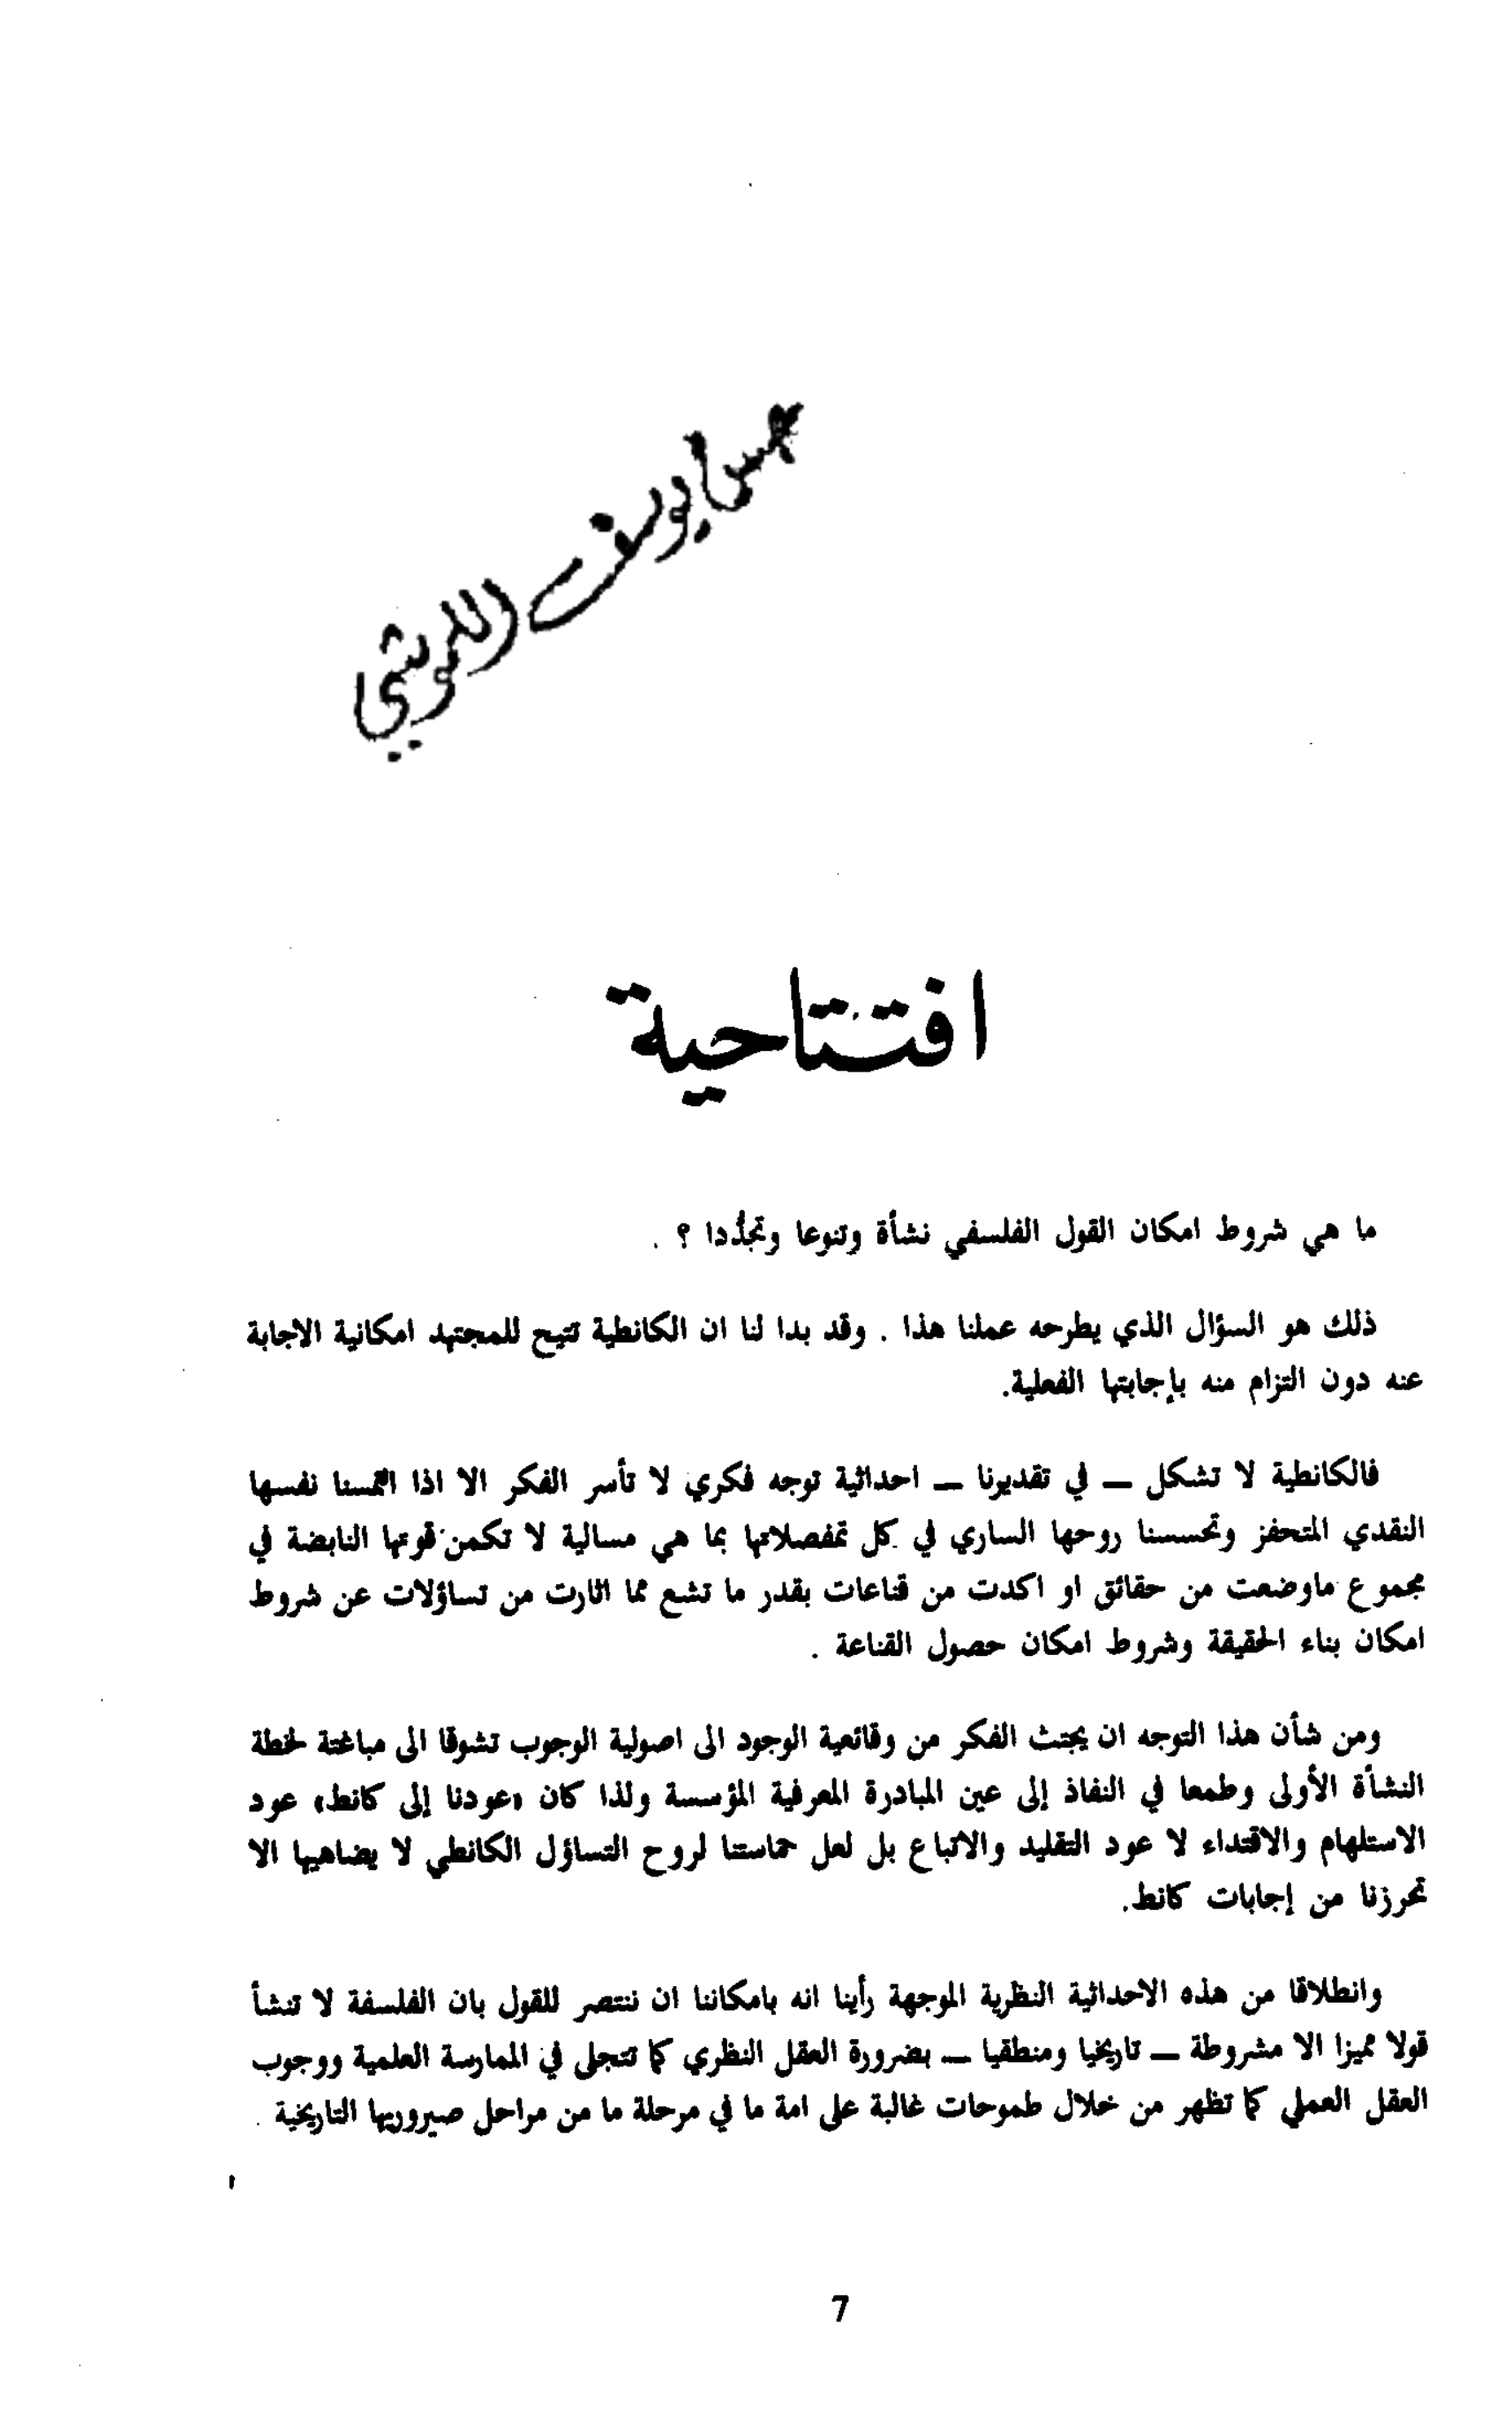 يوسف
افتتاحية
ما هي شروط امكان القول الفلسفي نشأة وتنوعا وتجدُّدا ؟ .
ذلك هو السؤال الذي يطرحه عملنا هذا . وقد بدا لنا ان الكانطية تتيح للمجتهد امكانية الاجابة
عنه دون التزام منه بإجابتها الفعلية.
فالكانطية لا تشكل — في تقديرنا — احداثية توجه فكري لا تأسر الفكر الا اذا التمسنا نفسها
النقدي المتحفز وتحسسنا روحها الساري في كل تمفصلاتها بما هي مسالية لا تكمن قوتها النابضة في
مجموع ماوضعت من حقائق او اكدت من قناعات بقدر ما تشع مما اثارت من تساؤلات عن شروط
امكان بناء الحقيقة وشروط امكان حصول القناعة .
ومن شأن هذا التوجه ان يجتث الفكر من وقائعية الوجود الى اصولية الوجوب تشوقا الى مباغتة لحظة
النشأة الأولى وطمعا في النفاذ إلى عين المبادرة المعرفية المؤسسة ولذا كان «عودنا إلى كانط» عود
الاستلهام والاقتداء لا عود التقليد والاتباع بل لعل حماستنا لروح التساؤل الكانطي لا يضاهيها الا
تحرزنا من إجابات كانط.
وانطلاقا من هذه الاحداثية النظرية الموجهة رأينا انه بامكاننا ان ننتصر للقول بان الفلسفة لا تنشأ
قولا مميزا الا مشروطة — تاريخيا ومنطقيا — بضرورة العقل النظري كما تتجلى في الممارسة العلمية ووجوب
العقل العملي كما تظهر من خلال طموحات غالبة على امة ما في مرحلة ما من مراحل صيروريها التاريخية .
7